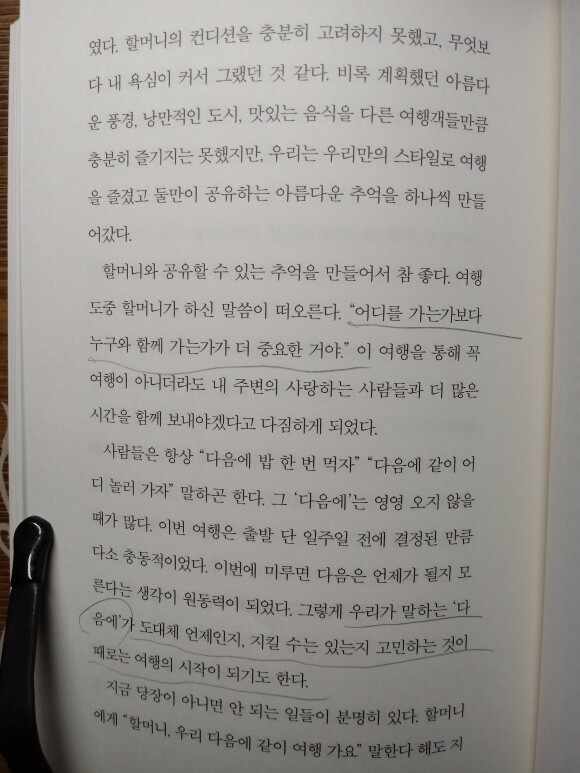 였다. 할머니의 컨디션을 충분히 고려하지 못했고, 무엇보
다 내 욕심이 커서 그랬던 것 같다. 비록 계획했던 아름다
운 풍경, 낭만적인 도시, 맛있는 음식을 다른 여행객들만큼
충분히 즐기지는 못했지만, 우리는 우리만의 스타일로 여행
을 즐겼고 둘만이 공유하는 아름다운 추억을 하나씩 만들
어갔다.
할머니와 공유할 수 있는 추억을 만들어서 참 좋다. 여행
도중 할머니가 하신 말씀이 떠오른다. “어디를 가는가보다
누구와 함께 가는가가 더 중요한 거야.” 이 여행을 통해 꼭
여행이 아니더라도 내 주변의 사랑하는 사람들과 더 많은
시간을 함께 보내야겠다고 다짐하게 되었다.
사람들은 항상 “다음에 밥 한 번 먹자” “다음에 같이 어
디 놀러 가자” 말하곤 한다. 그 ‘다음에’는 영영 오지 않을
때가 많다. 이번 여행은 출발 단 일주일 전에 결정된 만큼
다소 충동적이었다. 이번에 미루면 다음은 언제가 될지 모
른다는 생각이 원동력이 되었다. 그렇게 우리가 말하는 ‘다
음에’가 도대체 언제인지, 지킬 수는 있는지 고민하는 것이
때로는 여행의 시작이 되기도 한다.
지금 당장이 아니면 안 되는 일들이 분명히 있다. 할머니
에게 “할머니, 우리 다음에 같이 여행 가요” 말한다 해도 지